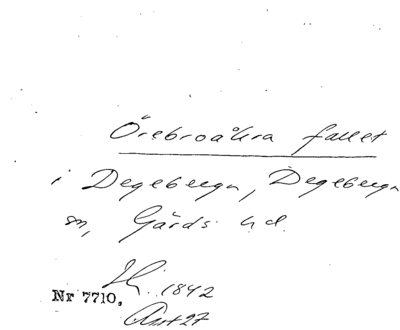 Örebroåkra fallet
i Degeberga, Degeberga
sn, Gärds hd.
1842
Nr 7710,
Avst 27